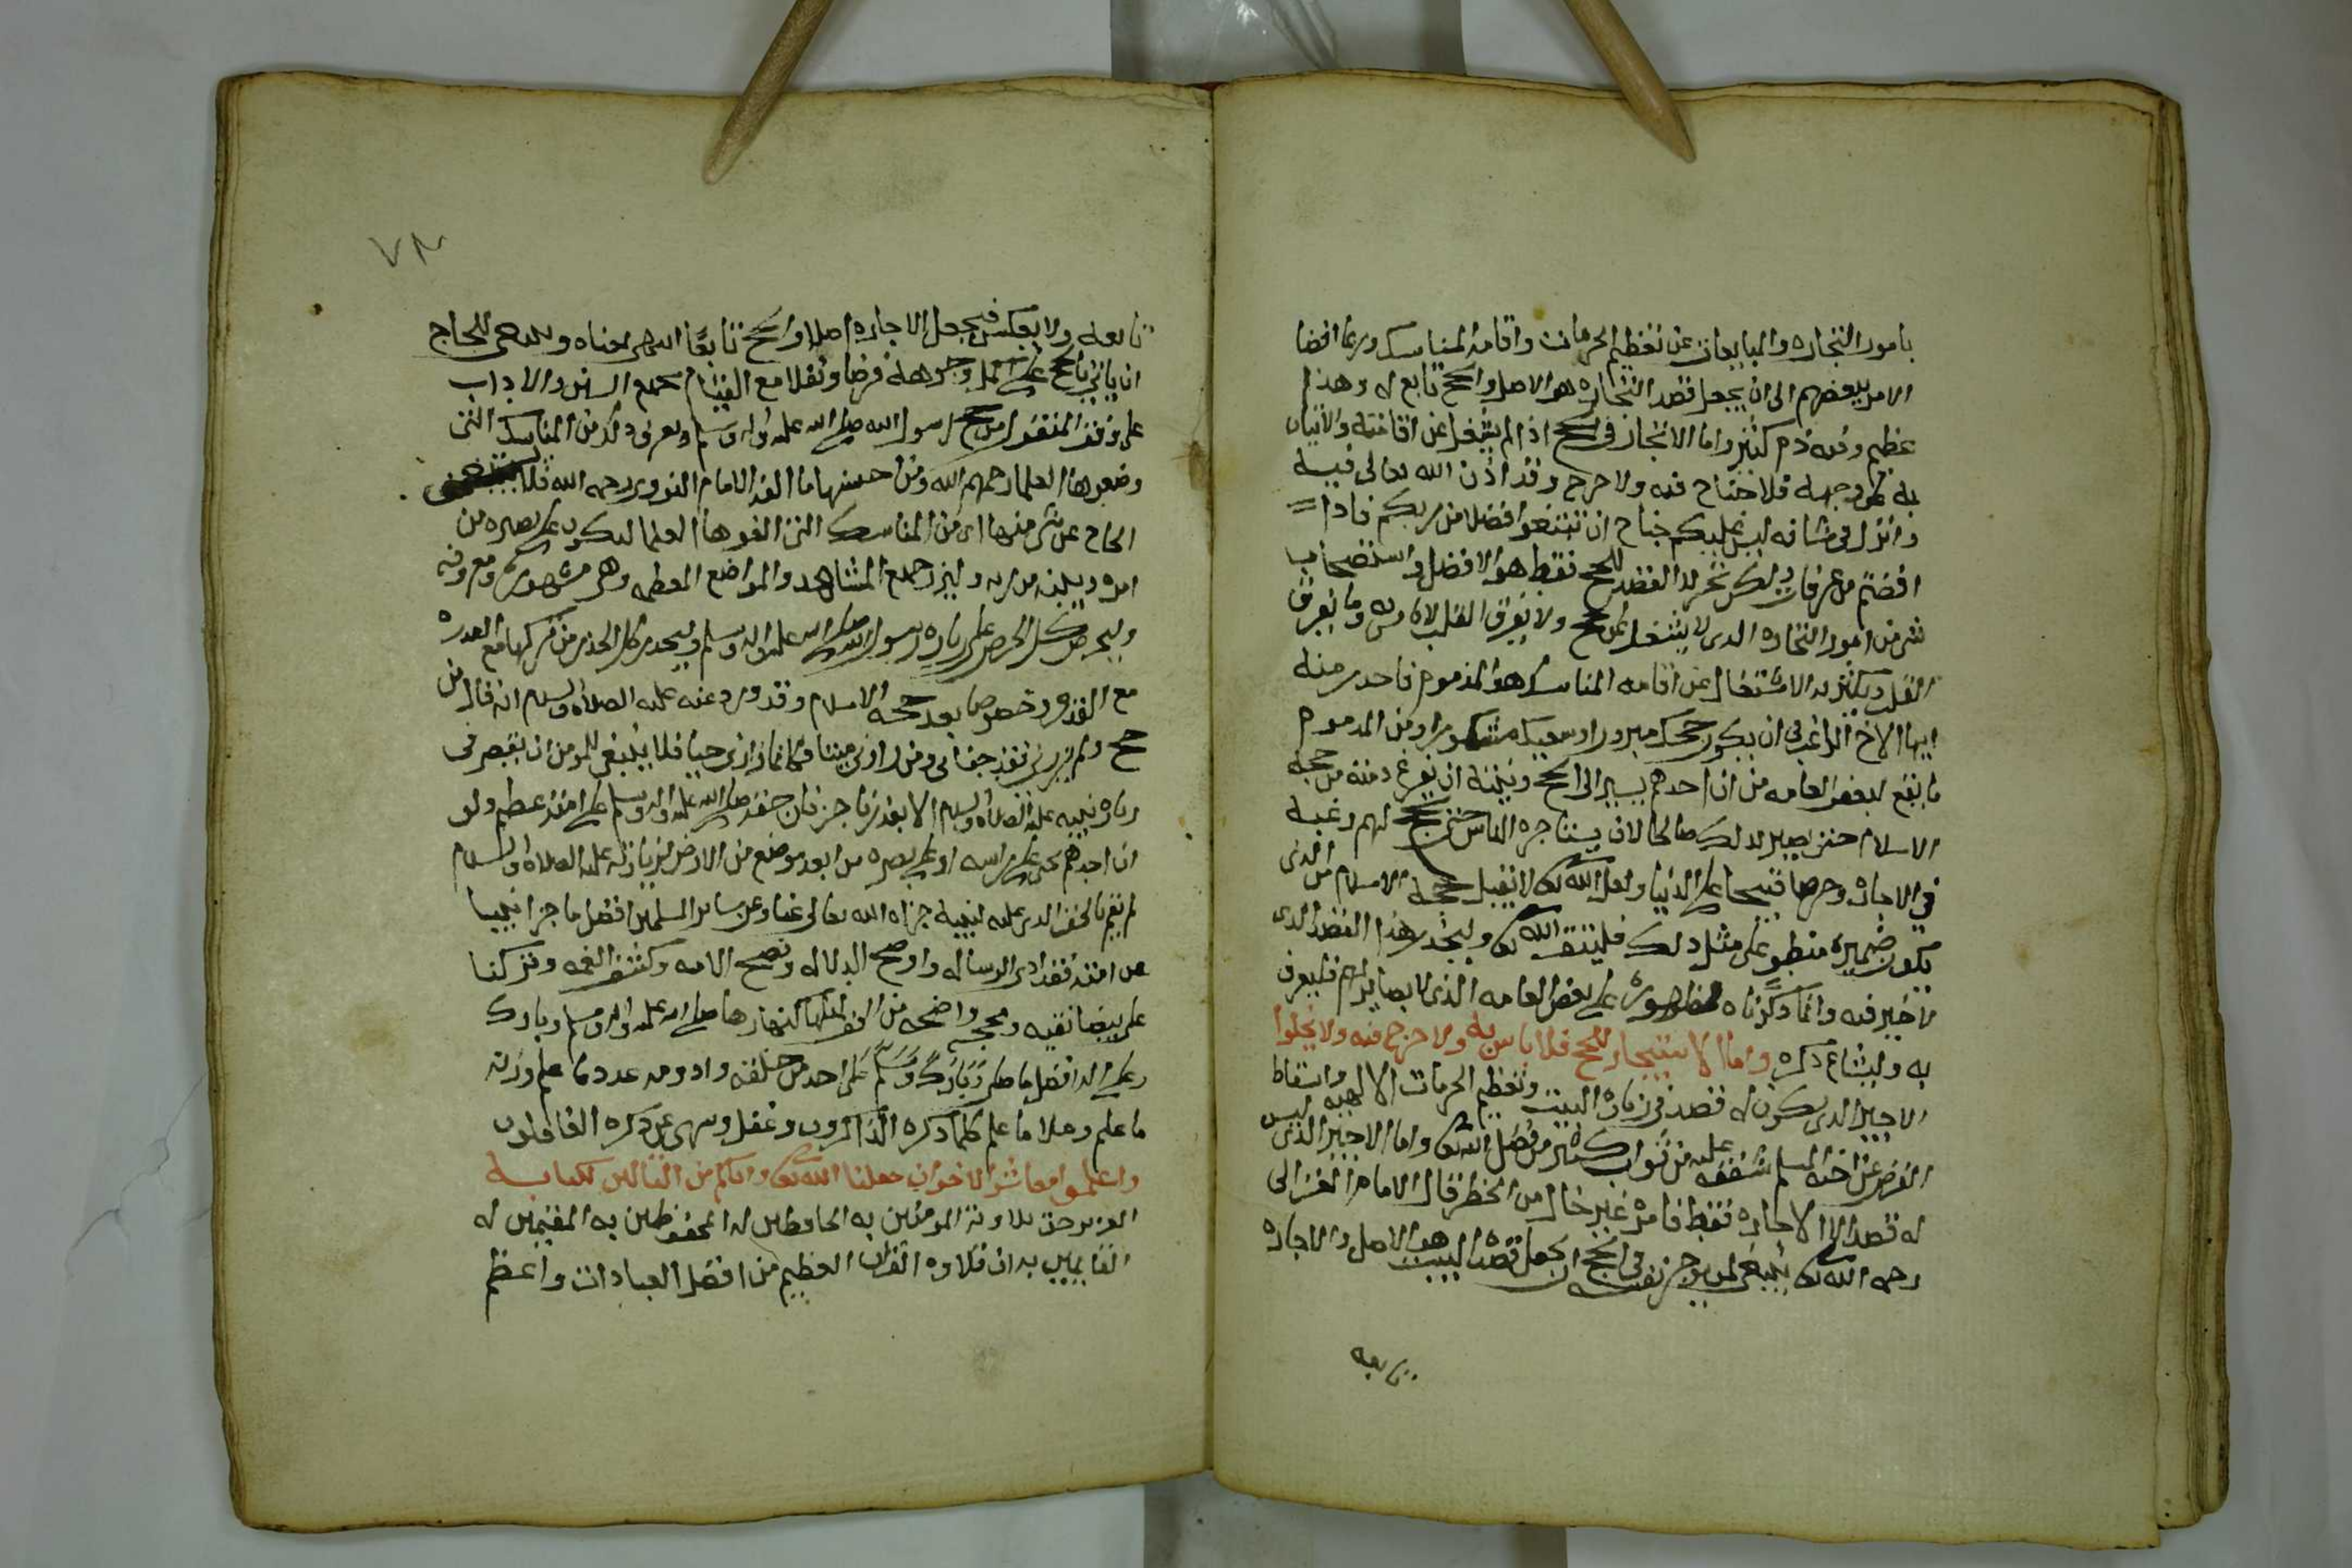 بامور التجاره والمبايعات عن تعظيم الحرمات واقامة المناسك وربما افضا
الامر ببعضهم الى ان يجعل قصد التجاره هو الاصل والحج تابع له وهذا
عظيم وفيه ذم كثير واما الاتجار في الحج اذا لم يشغل عن اقامته والاتيان
به على وجهه فلا جناح فيه ولا حرج وقد اذن الله تعالى فيه
وانزل في شانه ليس عليكم جناح ان تبتغوا فضلا من ربكم فاذا
افضتم من عرفات ولكن تجريد القصد للحج فقط هو الافضل واستصحاب
شي من امور التجاره الذي لا يشغل عن الحج ولا يفرق القلب لا باس به وما يفرق
القلب ويكثر به الاشتغال عن اقامه المناسك هو المذموم فاحذر منه
ايها الاخ الراغب في ان يكون حجك مبرورا وسعيك مشكورا ومن المذموم
ما يقع لبعض العامه من ان احدهم يسير الى الحج ونيته ان يفرغ ذمته من حجة
الاسلام حتى يصير بذلك صالحا لان يستاجره الناس حتى يحج لهم رغبة
في الاجاره وحرصا قبيحا على الدنيا ولعل الله تعالى لا يقبل حجة الاسلام من الذي
يكون ضميره منطو على مثل ذلك فليتق الله تعالى وليحذر هذا القصد الذي
لا خير فيه وانما ذكرناه لظهوره على بعض العامه الذي لا بصاير لهم فليعرف
به وليشاع ذكره واما الاستيجار للحج فلا باس به ولا حرج فيه ولا يخلوا
الاجير الذي يكون له قصد في زيارة البيت وتعظيم الحرمات الالهيه واسقاط
الفرض عن اخيه المسلم شفقه عليه من ثواب كثير من فضل الله تعالى واما الاجير الذي ليس
له قصد الا الاجاره فقط فامره غير خال من الخطر قال الامام الغزالي
رحمه الله تعالى ينبغي لمن يوجر نفسه في الحج ان يجعل قصد البيت هو الاصل والاجاره
تابعه
٧٨
تابعه ولا يعكس فيجعل الاجاره اصلا والحج تابعا انتهى معناه وينبغي للحاج
ان ياتي بالحج على اكمل وجوهه فرضا ونفلا مع القيام بجميع السنن والاداب
على وفق المنقول من حج رسول الله صلى الله عليه واله وسلم ويعرف ذلك من المناسك التي
وضعوها العلما رحمهم الله ومن احسنها ما الفه الامام النووي رحمه الله فلا يستغني
الحاج عن شي منها اي من المناسك التي الفوها العلما ليكون على بصيره من
امره ويبلغ من اربه وليزر جميع المشاهد والمواضع المعظمه وهي مشهوره ومعروفه
وليحرص كل الحرص على زياره رسول الله صلى الله عليه واله وسلم وليحذر كل الحذر من تركها مع القدره
مع القدره وخصوصا بعد حجة الاسلام وقد ورد عنه عليه الصلاة والسلام انه قال من
حج ولم يزرني فقد جفاني ومن زارني ميتا فكانما زارني حيا فلا ينبغي للمومن ان يقصر في
زياره نبيه عليه الصلاة والسلام الا بعذر ناجز فان حقه صلى الله عليه واله وسلم على امته عظيم ولو
ان احدهم يجي على راسه او على بصره من ابعد موضع من الارض لزيارته عليه الصلاة والسلام
لم يقم بالحق الذي عليه لنبيه جزاه الله تعالى عنا وعن ساير المسلمين افضل ما جزا نبيا
عن امته فقد ادى الرساله واوضح الدلاله ونصح الامه وكشف الغمه وتركنا
على بيضا نقيه ومحجه واضحه من الحق ليلها كنهارها صلى الله عليه واله وسلم وبارك
وعلى اله افضل ما صلى وبارك وسلم على احد من خلقه وادومه عدد ما علم وزنه
ما علم وملا ما علم كلما ذكره الذاكرون وغفل وسهى عن ذكره الغافلون
واعلموا معاشر الاخوان جعلنا الله تعالى واياكم من التالين لكتابه
العزيز حق تلاوته المومنين به الحافظين له المحفوظين به المقيمين له
القايمين به ان تلاوه القران العظيم من افضل العبادات واعظم